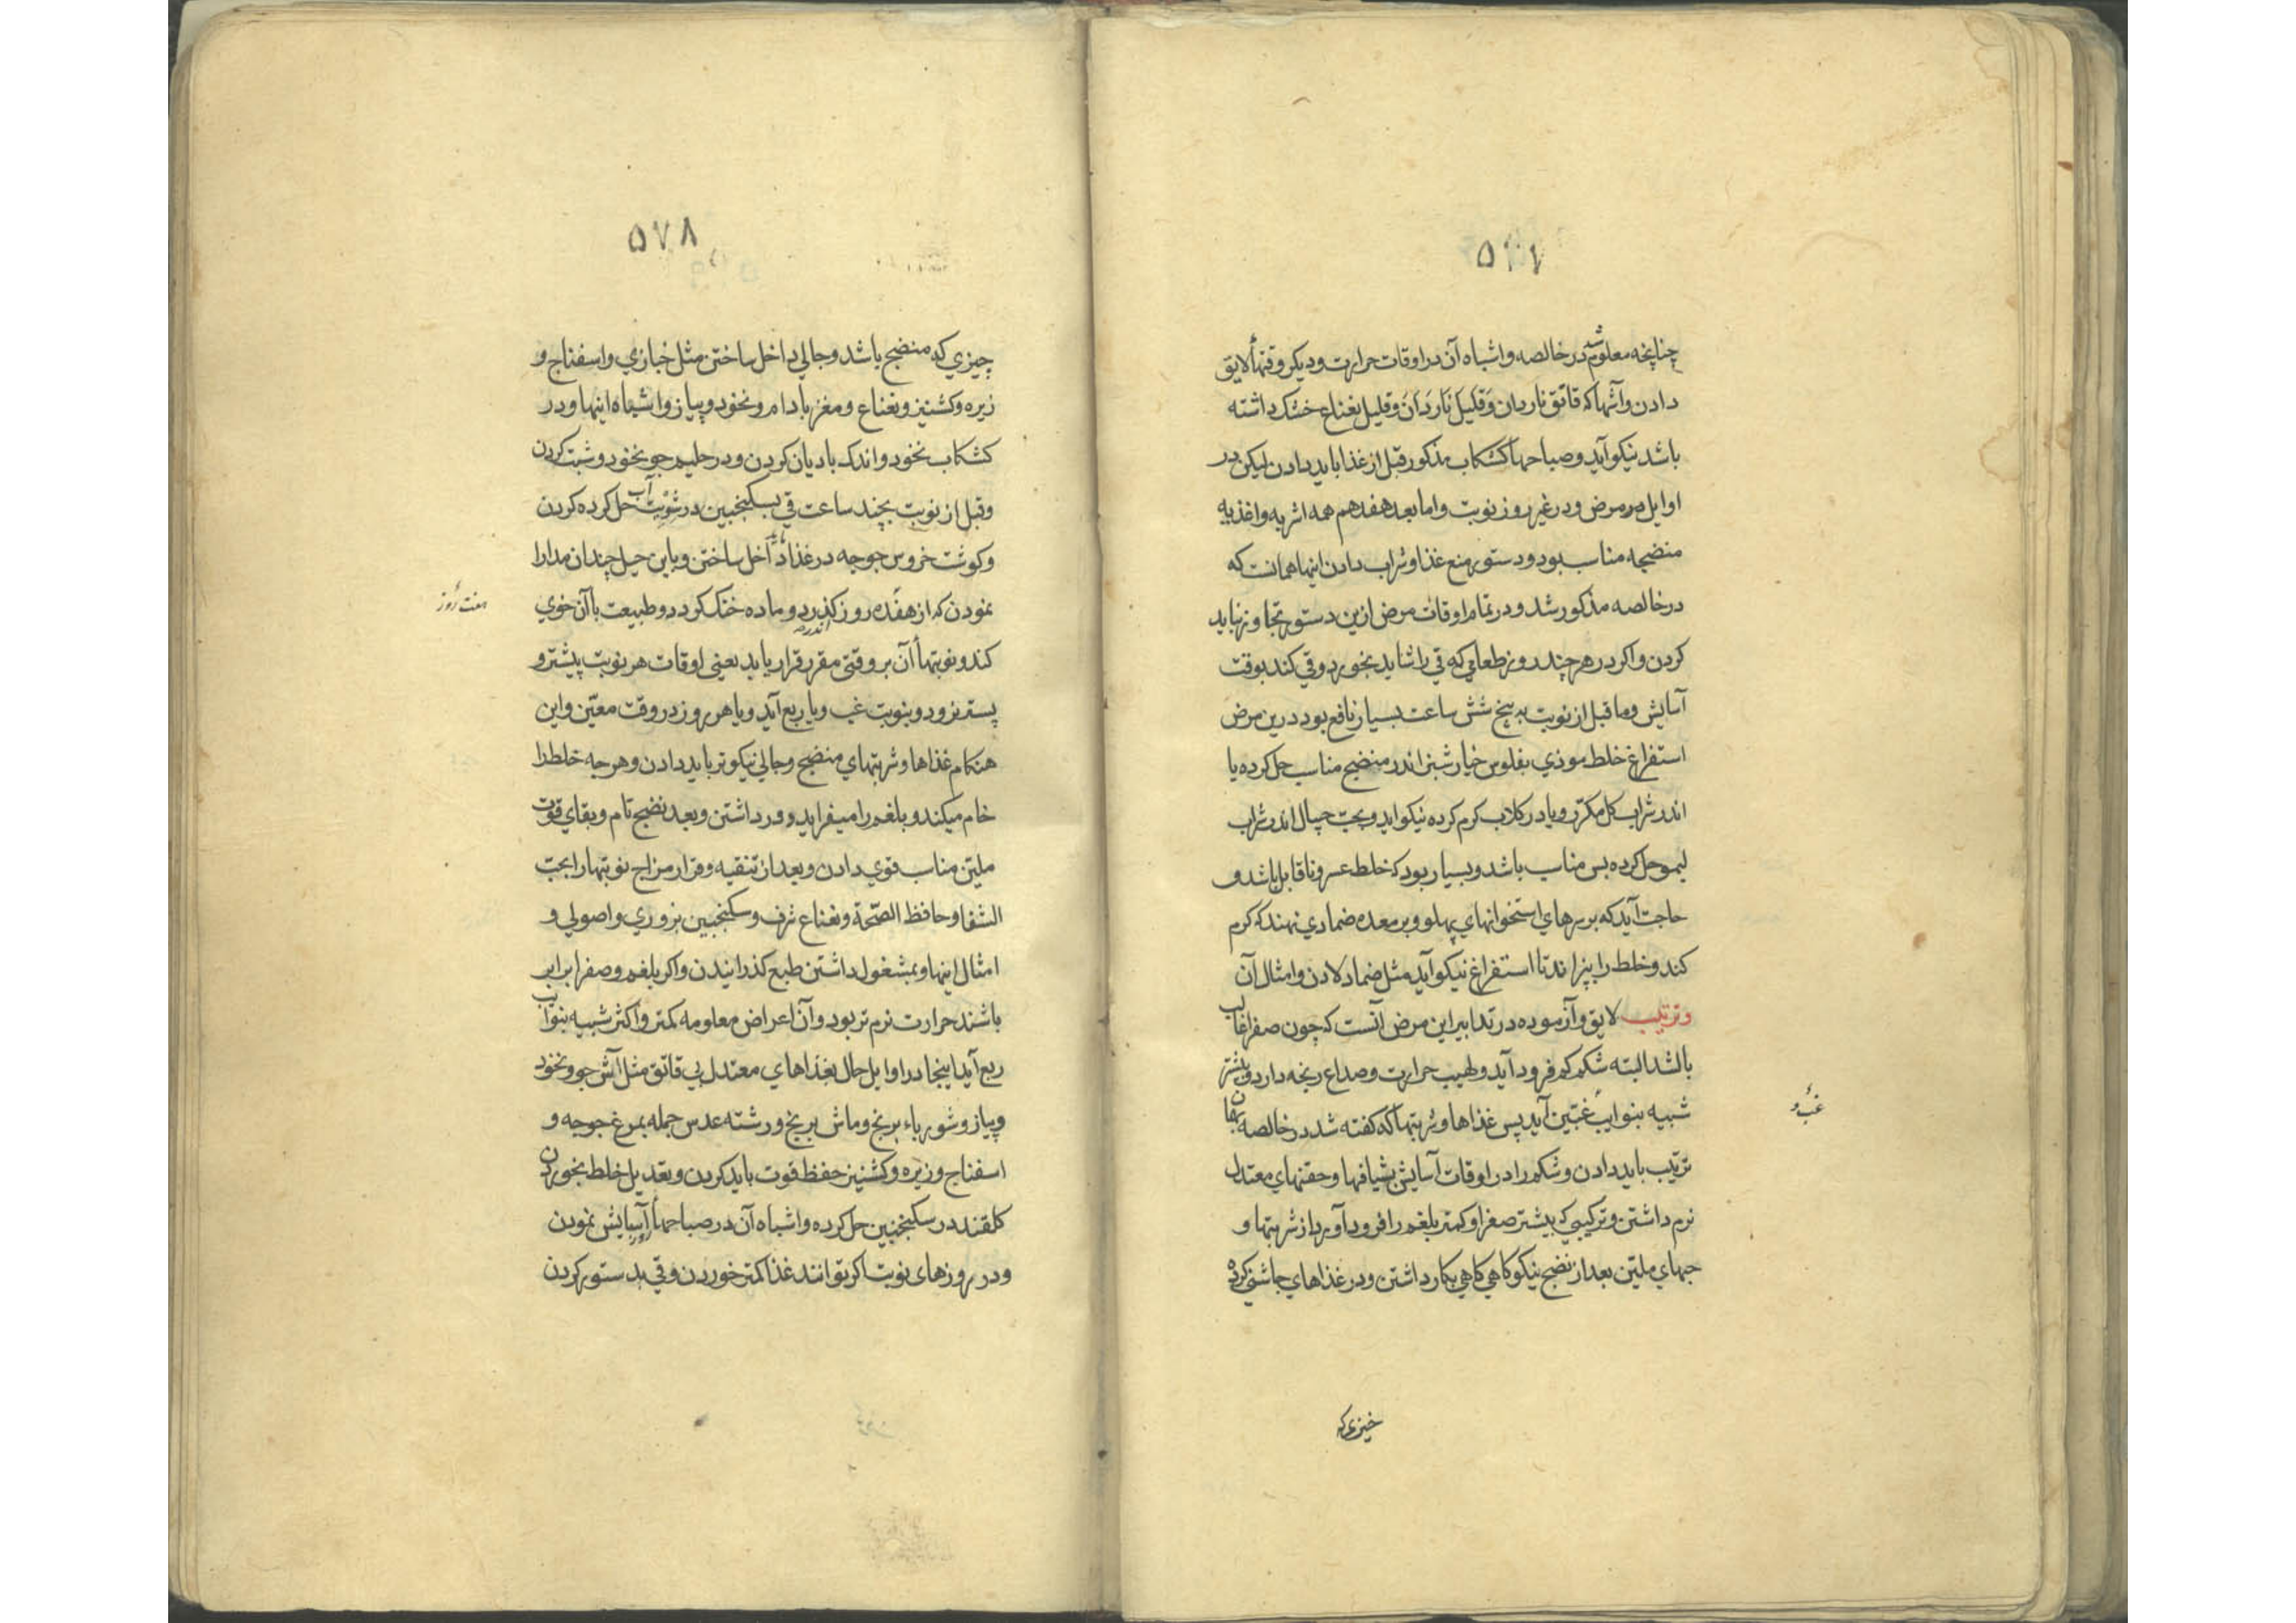 ۵۷۷
چنانچه معلوم شد در خالصه و اشباه آن در اوقات حرارت و دیکر وقتها لایق
دادن و آشها که قاتق ناردان و قلیل ناردان و قلیل نعناع خشک داشته
باشد نیکو آید و صباحها کشکاب مذکور قبل از غذا باید دادن لیکن در
اوایل مرض و در غیر روز نوبت و اما بعد هفدهم همه اشربه و اغذیه
منضجه مناسب بود و دستور منع غذا و شراب دادن اینها همانست که
در خالصه مذکور شد و در تمام اوقات مرض ازین دستور تجاوز نباید
کردن و اکر در هر چند روز طعامی که قی را شاید بخورد و قی کند بوقت
آسایش و ما قبل از نوبت به پنج شش ساعت بسیار نافع بود درین مرض
استفراغ خلط موذی بفلوس خیارشنبر اندر منضج مناسب حل کرده یا
اندر شراب کل مکرر و یا در کلاب کرم کرده نیکو اید و بحب حیال اندر شراب
لیمو حل کرده بس مناسب باشد و بسیار بود که خلط عسر و ناقابل باشد و
حاجت آید که بر سرهای استخوانهای پهلو و بر معده ضمادی نهند که کرم
کند و خلط را بپزاند تا استفراغ نیکو آید مثل ضماد لادن و امثال آن
و ترتیب لایق و آزموده در تدابیر این مرض آنست که چون صفرا غالب
باشد البته شکم کم فرود آید و لهیب حرارت و صداع رنجه دارد و بیشتر
شبیه بنوایب غبین آید پس غذاها و شربتها که کفته شد در خالصه بهمان
ترتیب باید دادن و شکم را در اوقات آسایش بشیافها و حقنهای معتدل
نرم داشتن و ترکیبی که بیشتر صفرا و کمتر بلغم را فرود آورد از شربتها و
حبهای ملین بعد از نضج نیکو کاهی کاهی بکار داشتن و در غذاهای چاشنی کرده
غب و
خیزی که
۵۷۸
چیزی که منضج باشد و جالی داخل ساختن مثل خبازی و اسفناج و
زیره و کشنیز و نعناع و مغز بادام و نخود و پیاز و اشباه اینها و در
کشکاب نخود و اندک بادیان کردن و در حلیم جو نخود و شبت کردن
و قبل از نوبت بچند ساعت قی بسکنجبین در آب شوبت حل کرده کردن
و کوشت خروس جوجه در غذا داخل ساختن و باین حیل چندان مدارا
نمودن که از هفده روز کذرد و ماده خنک کردد و طبیعت با آن خوی
کند و نوبتها آن بر وقتی مقرر قرار یابد یعنی اوقات هر نوبت پیشتر و
پستر نرود و بنوبت غب و یا ربع آید و یا هر روز در وقت معین و این
هنکام غذاها و شربتهای منضج و جالی نیکوتر باید دادن و هر چه خلط را
خام میکند و بلغم را میفزاید دور داشتن و بعد نضج تام و بقای قوت
ملین مناسب قوی دادن و بعد از تنقیه و قرار مزاج نوبتها را بحب
الشفا و حافظ الصحة و نعناع ثرف و سکنجبین بزوری و اصولی و
امثال اینها و بمشغول داشتن طبع کذرانیدن و اکر بلغم و صفرا برابر
باشند حرارت نرم تر بود و آن اعراض معلومه کمتر و اکثر شبیه بنوایب
ربع آید اینجا در اوایل حال بغذاهای معتدل بی قاتق مثل آش جو و نخود
و پیاز و شورباء برنج و ماش برنج و رشته عدس جمله بمرغ جوجه و
اسفناج و زیره و کشنیز حفظ قوت باید کردن و تعدیل خلط بخوردن
کلقند در سکنجبین حل کرده و اشباه آن در صباحها آسایش نمودن
و در روزهای نوبت اکر توانند غذا کمتر خوردن و قی بدستور کردن
هفت روز